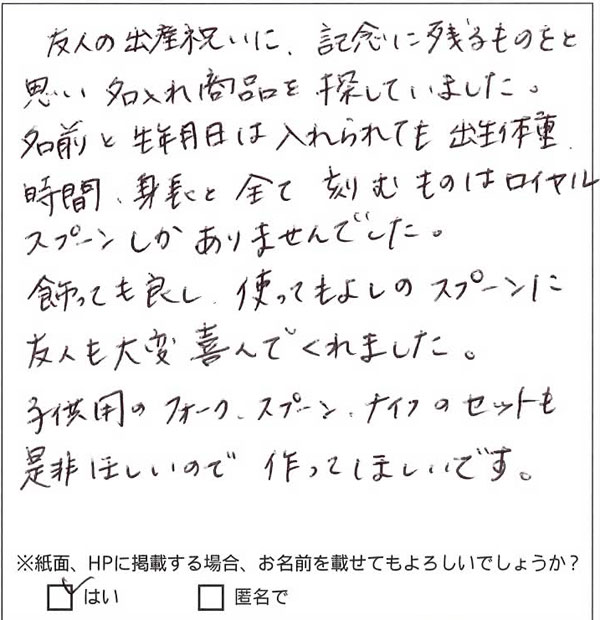 友人の出産祝いに、記念に残るものをと
思い名入れ商品を探していました。
名前と生年月日は入れられても出生体重、
時間、身長と全て刻むものはロイヤル
スプーンしかありませんでした。
飾っても良し、使ってもよしのスプーンに
友人も大変喜んでくれました。
子供用のフォーク、スプーン、ナイフのセットも
是非ほしいので作ってほしいです。
※紙面、HPに掲載する場合、お名前を載せてもよろしいでしょうか？
はい 匿名で